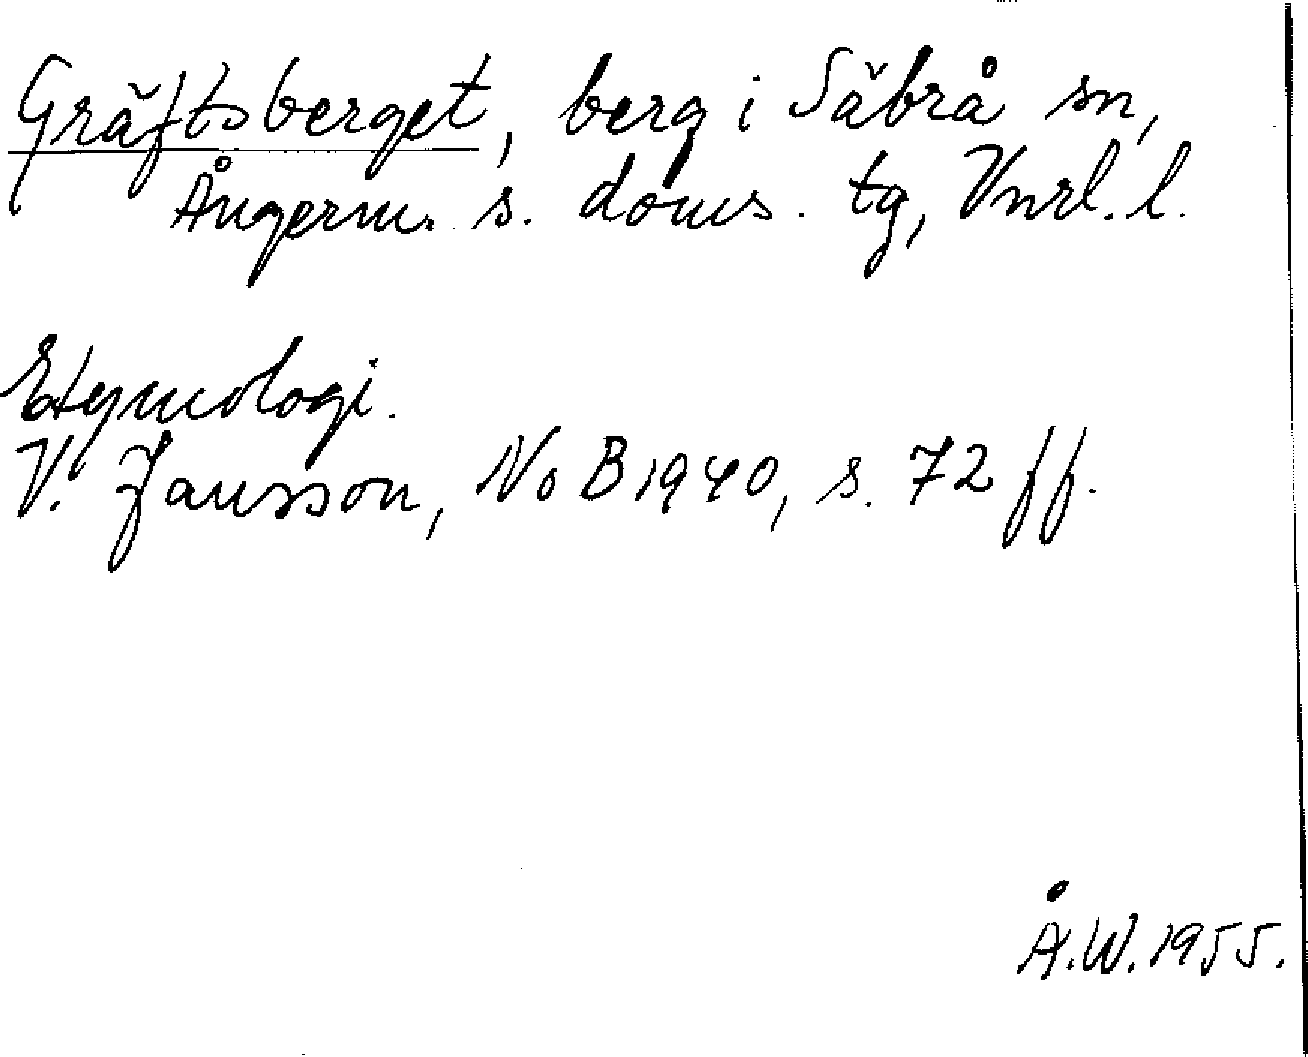 Gräftsberget, berg i Säbrå sn,
Ångerm. s. doms. tg, Vnrl. l.
Etymologi.
V. Jansson, NoB 1940, s. 72 ff.
Å.W. 1955.